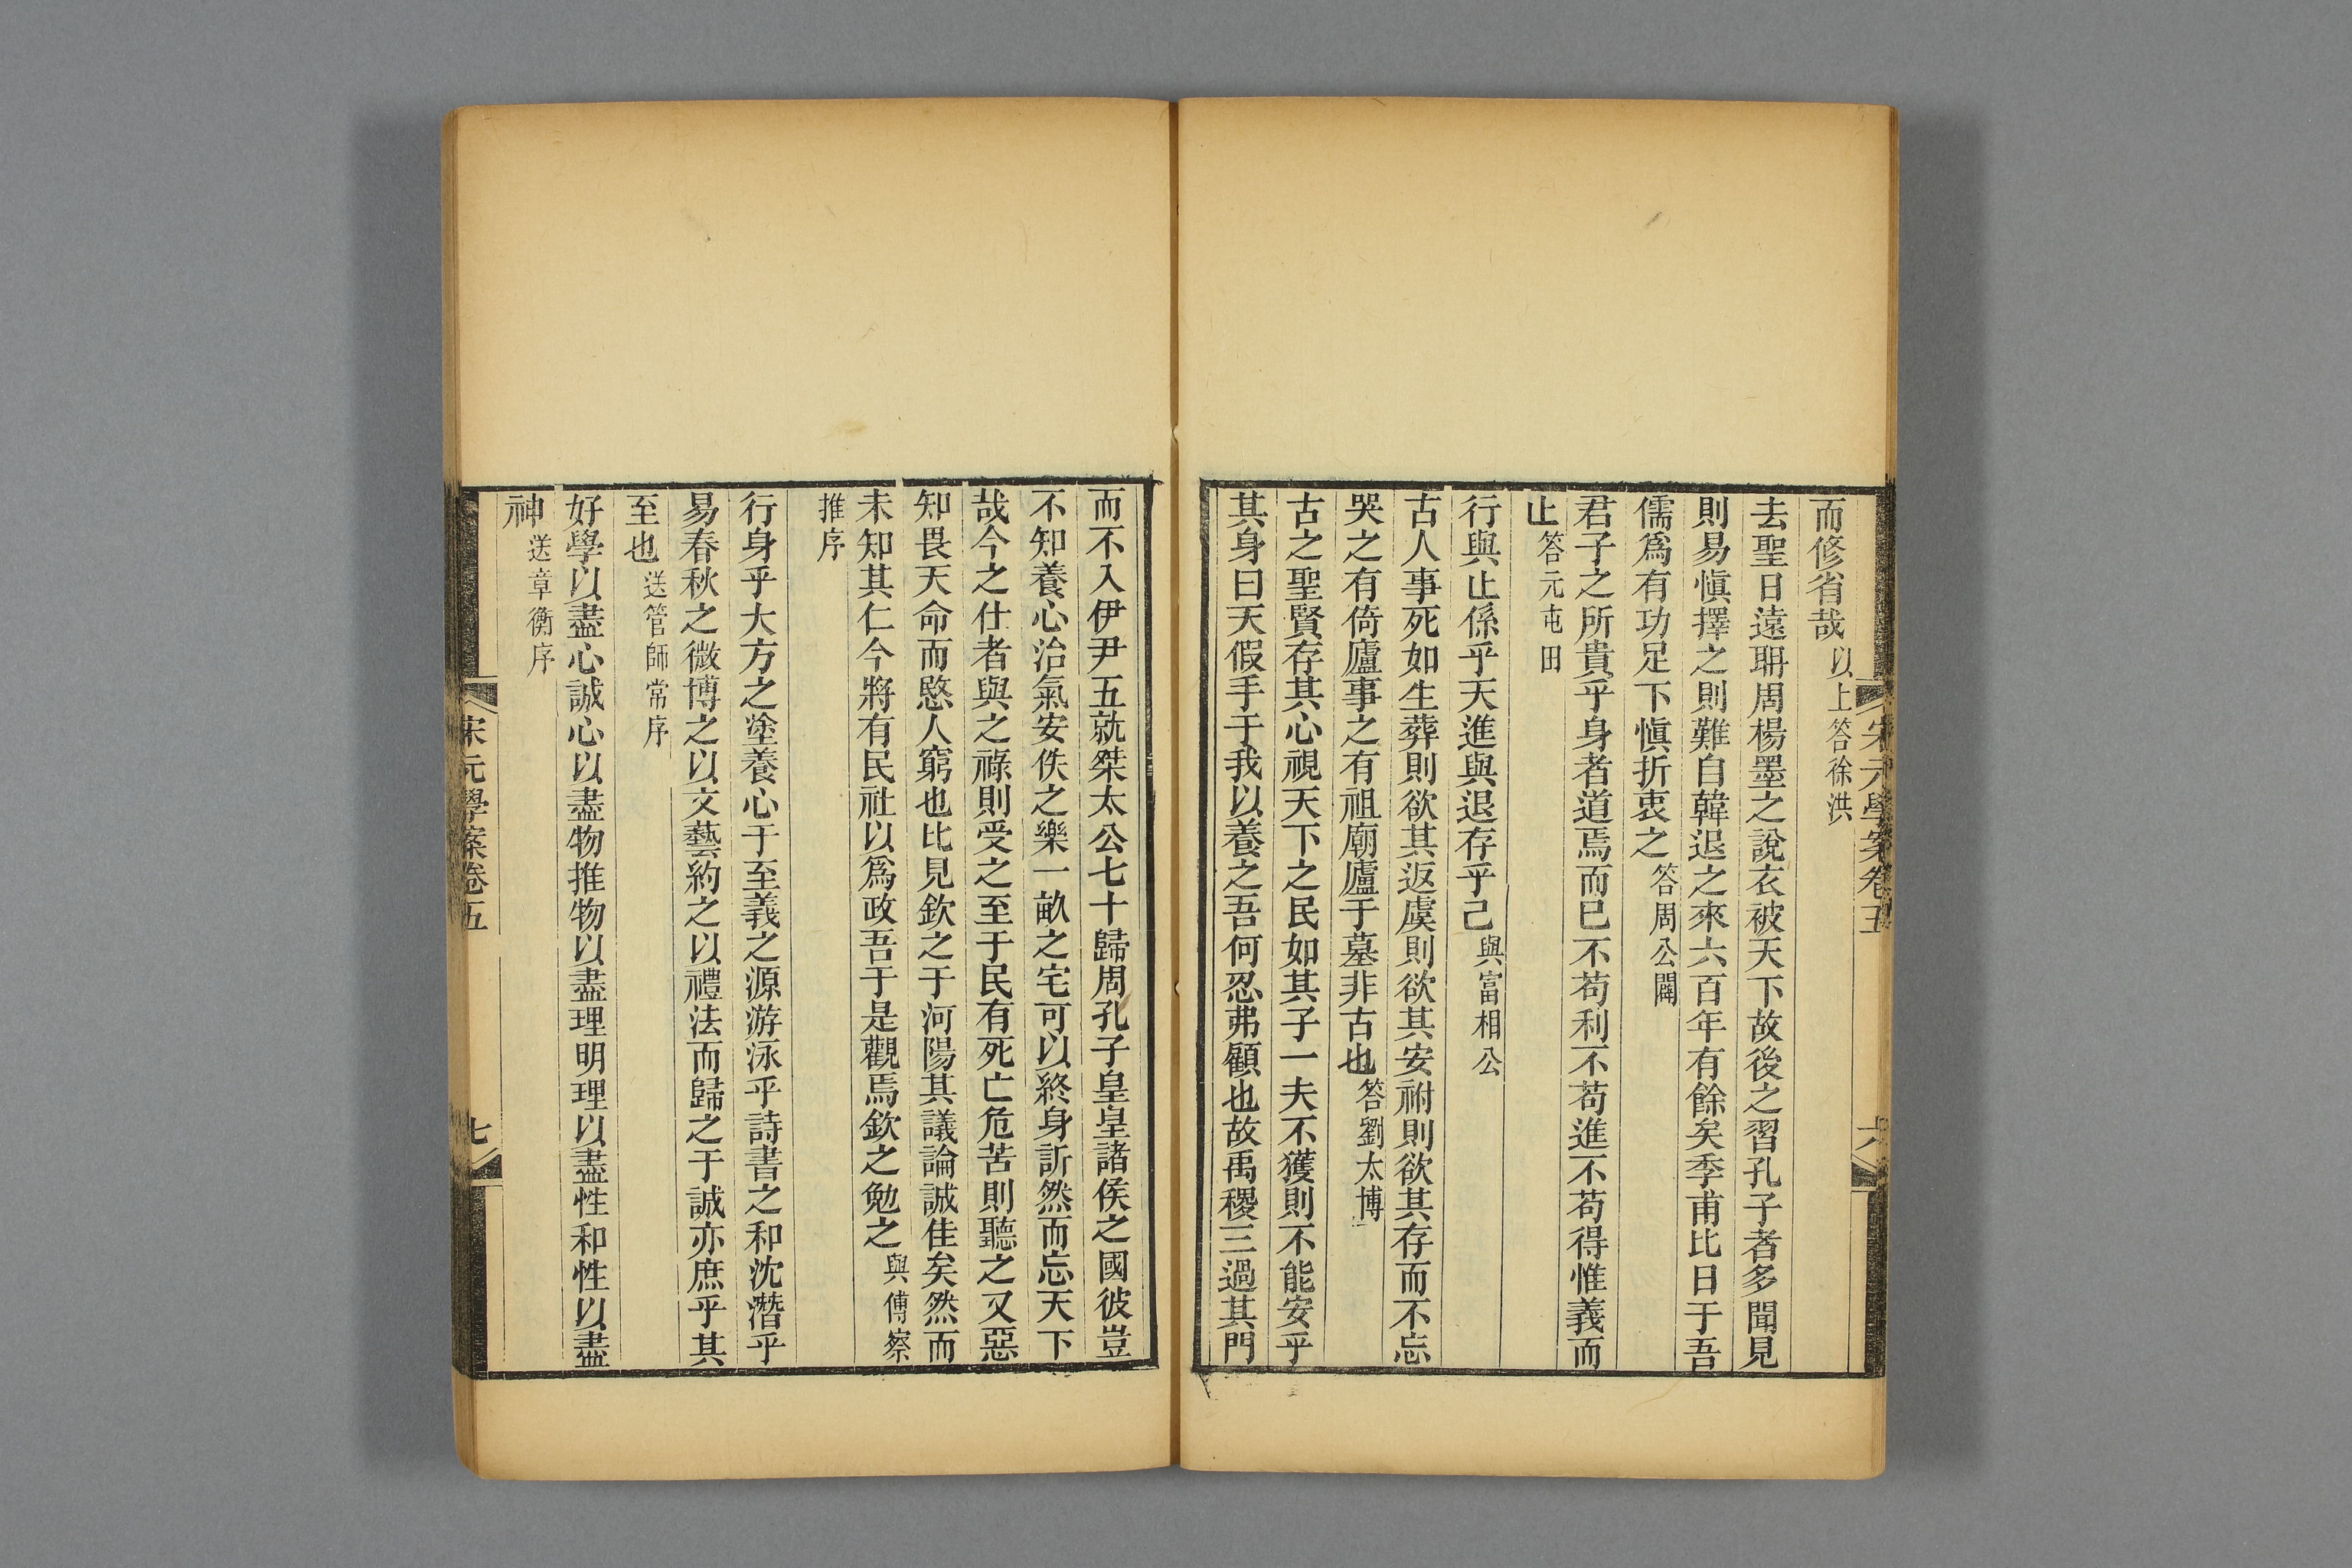 宋元學案卷五
六
而修省哉以上答徐洪
去聖日遠聃周楊墨之說衣被天下故後之習孔子者多聞見
則易愼擇之則難自韓退之來六百年有餘矣季甫比日于吾
儒爲有功足下愼折衷之答周公闢
君子之所貴乎身者道焉而已不苟利不苟進不苟得惟義而
止答元屯田
行與止係乎天進與退存乎己與富相公
古人事死如生葬則欲其返虞則欲其安祔則欲其存而不忘
哭之有倚廬事之有祖廟廬于墓非古也答劉太博
古之聖賢存其心視天下之民如其子一夫不獲則不能安乎
其身曰天假手于我以養之吾何忍弗顧也故禹稷三過其門
而不入伊尹五就桀太公七十歸周孔子皇皇諸侯之國彼豈
不知養心治氣安佚之樂一畝之宅可以終身訢然而忘天下
哉今之仕者與之祿則受之至于民有死亡危苦則聽之又惡
知畏天命而愍人窮也比見欽之于河陽其議論誠佳矣然而
未知其仁今將有民社以爲政吾于是觀焉欽之勉之與傅察
推序
行身乎大方之塗養心于至義之源游泳乎詩書之和沈潛乎
易春秋之微博之以文藝約之以禮法而歸之于誠亦庶乎其
至也送管師常序
好學以盡心誠心以盡物推物以盡理明理以盡性和性以盡
神送章衡序
宋元學案卷五
七